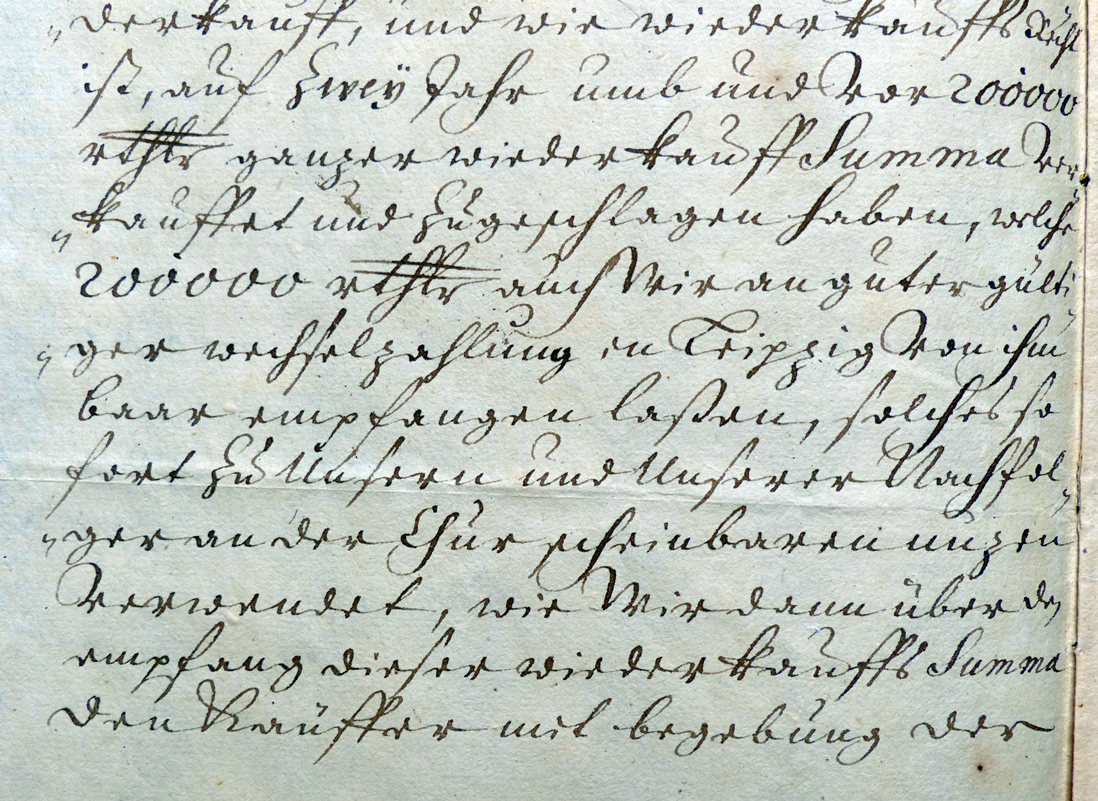 „derkauff, und wie wiederkauffs Recht
ist, auf Zweÿ Jahr umb und Vor 200000
rthlr ganzer wiederkauff Summa Ver„
„kauffet und Zugeschlagen haben, welche
200000 rthlr auch Wir an guter gülti„
„ger wechselzahlung in Leipzig Von ihm
baar empfangen laßen, solches so
fort Zu Unsern und Unserer Nachfol„
„ger an der Chur scheinbaren nuzen
Verwendet, wie Wir dann über den
empfang dieser wiederkauffs Summa
den Käuffer mit begebung der